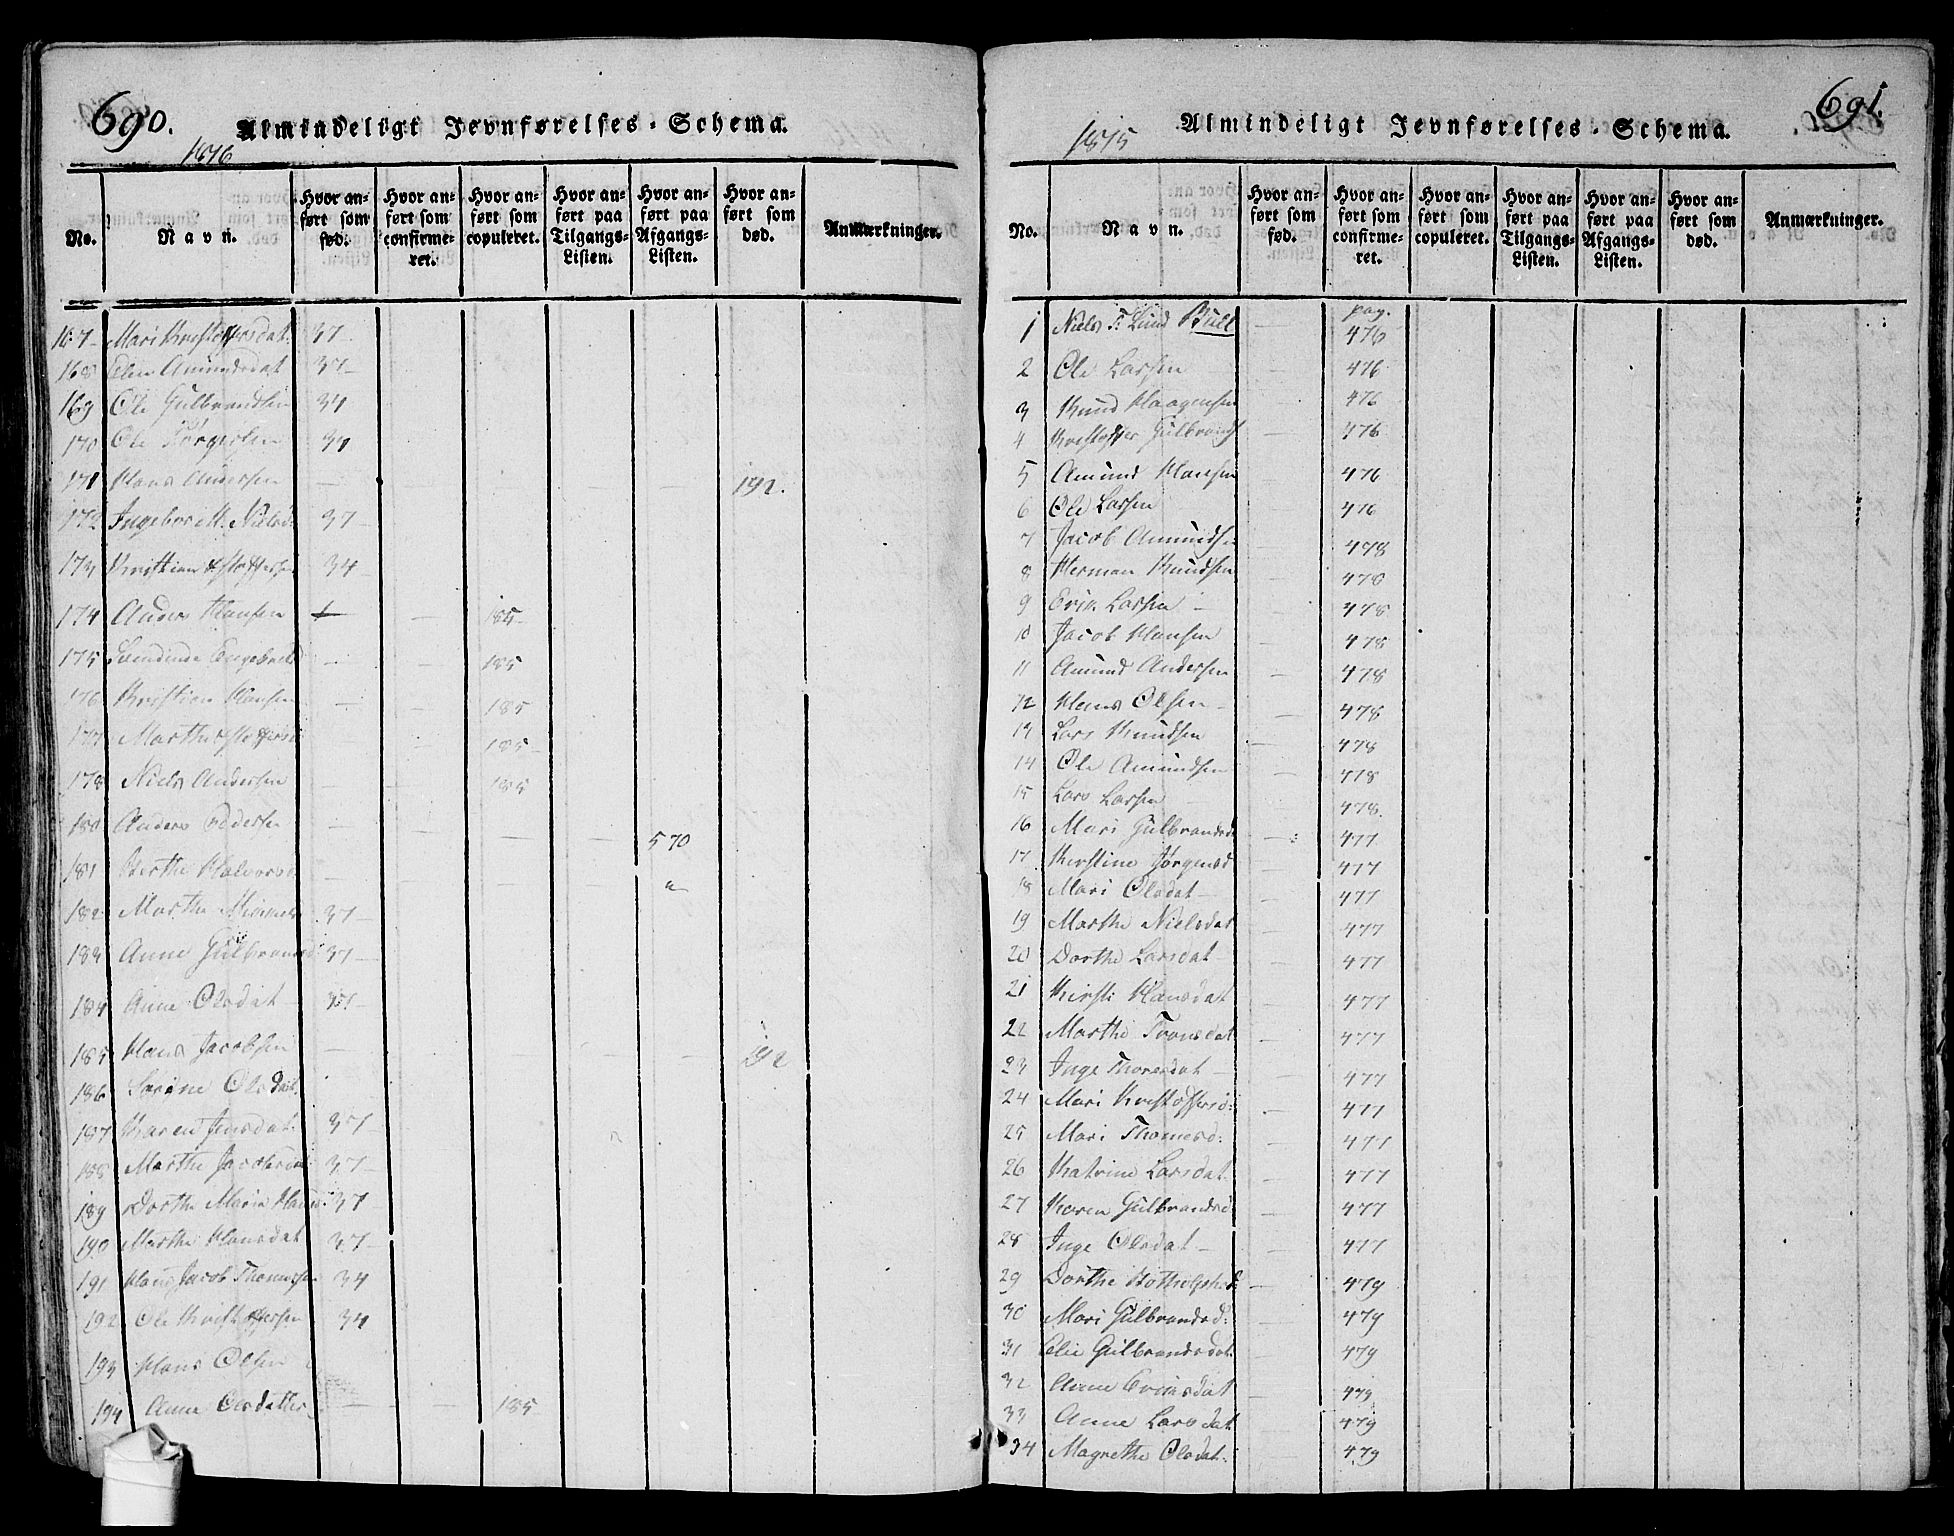 690.
Almindeligt Jevnførelses-Schema.
1816
No.
Navn.
Hvor anført som fød.
Hvor anført som confirmeret.
Hvor anført som copuleret.
Hvor anført paa Tilgangs-Listen.
Hvor anført paa Afgangs-Listen.
Hvor anført som død.
Anmærkninger.
167 Mari Kristoffersdat. 37
168 Elen Amundsdat 37
169 Ole Gulbrandsen 34
170 Ole Jørgensen 34
171 Hans Andersen — 192.
172 37
173 34
174 Anders Hansen — 185
175 185
176 Kristian Hansen — 185
177 Marthe — 185
178 Niels Andersen 185
180 Anders 570
181 Berthe Halvorsd. — "
182 Marthe 37
183 Anne Gulbrandsd: 37
184 Anne Olsdat 37
185 Hans Jacobsen — 192
186 Olsdat.
187 Karen Jensdat 37
188 Marthe Jacobsdat 37
189 Dorthe Maria Hansd: 37
190 Marthe Hansdat 37
191 Hans Jacob Thomesen 34
192 Ole Kristoffersen 34
193 Hans Olsen
194 Anne Olsdatter — — 185
691.
Almindeligt Jevnførelses-Schema.
1815
No.
Navn.
Hvor anført som fød.
Hvor anført som confirmeret.
Hvor anført som copuleret.
Hvor anført paa Tilgangs-Listen.
Hvor anført paa Afgangs-Listen.
Hvor anført som død.
Anmærkninger.
pag.
1 Niels F: Lund Bull — 476
2 Ole Larsen — 476
3 Knud Haagensen — 476
4 Kristoffer Gulbrands — 476
5 Amund Hansen — 476
6 Ole Larsen — 476
7 Jacob Amundsen — 478
8 Herman Knudsen — 478
9 Erik Larsen — 478
10 Jacob Hansen — 478
11 Amund Andersen — 478
12 Hans Olsen — 478
13 Lars Knudsen — 478
14 Ole Amundsen — 478
15 Lars Larsen — 478.
16 Mari Gulbrandsd — 477
17 Kirstine Jørgensd — 477
18 Mari Olsdat — 477
19 Marthe Nielsdat — 477
20 Dorthe Larsdat — 477
21 Kirsti Hansdat — 477
22 Marthe Tronsdat — 477
23 Inge Thoresdat — 477
24 Mari Kristoffersd: — 477
25 Mari Thomesd: — 477
26 Katrine Larsdat — 477
27 Karen Gulbrandsd — 477
28 Inge Olsdat — 477
29 Dorthe — 479
30 Mari Gulbrandsd: — 479
31 Gulbrandsdat: — 479
32 Anne Eriksdat — 479
33 Anne Larsdat — 479
34 Magrethe Olsdat. — 479